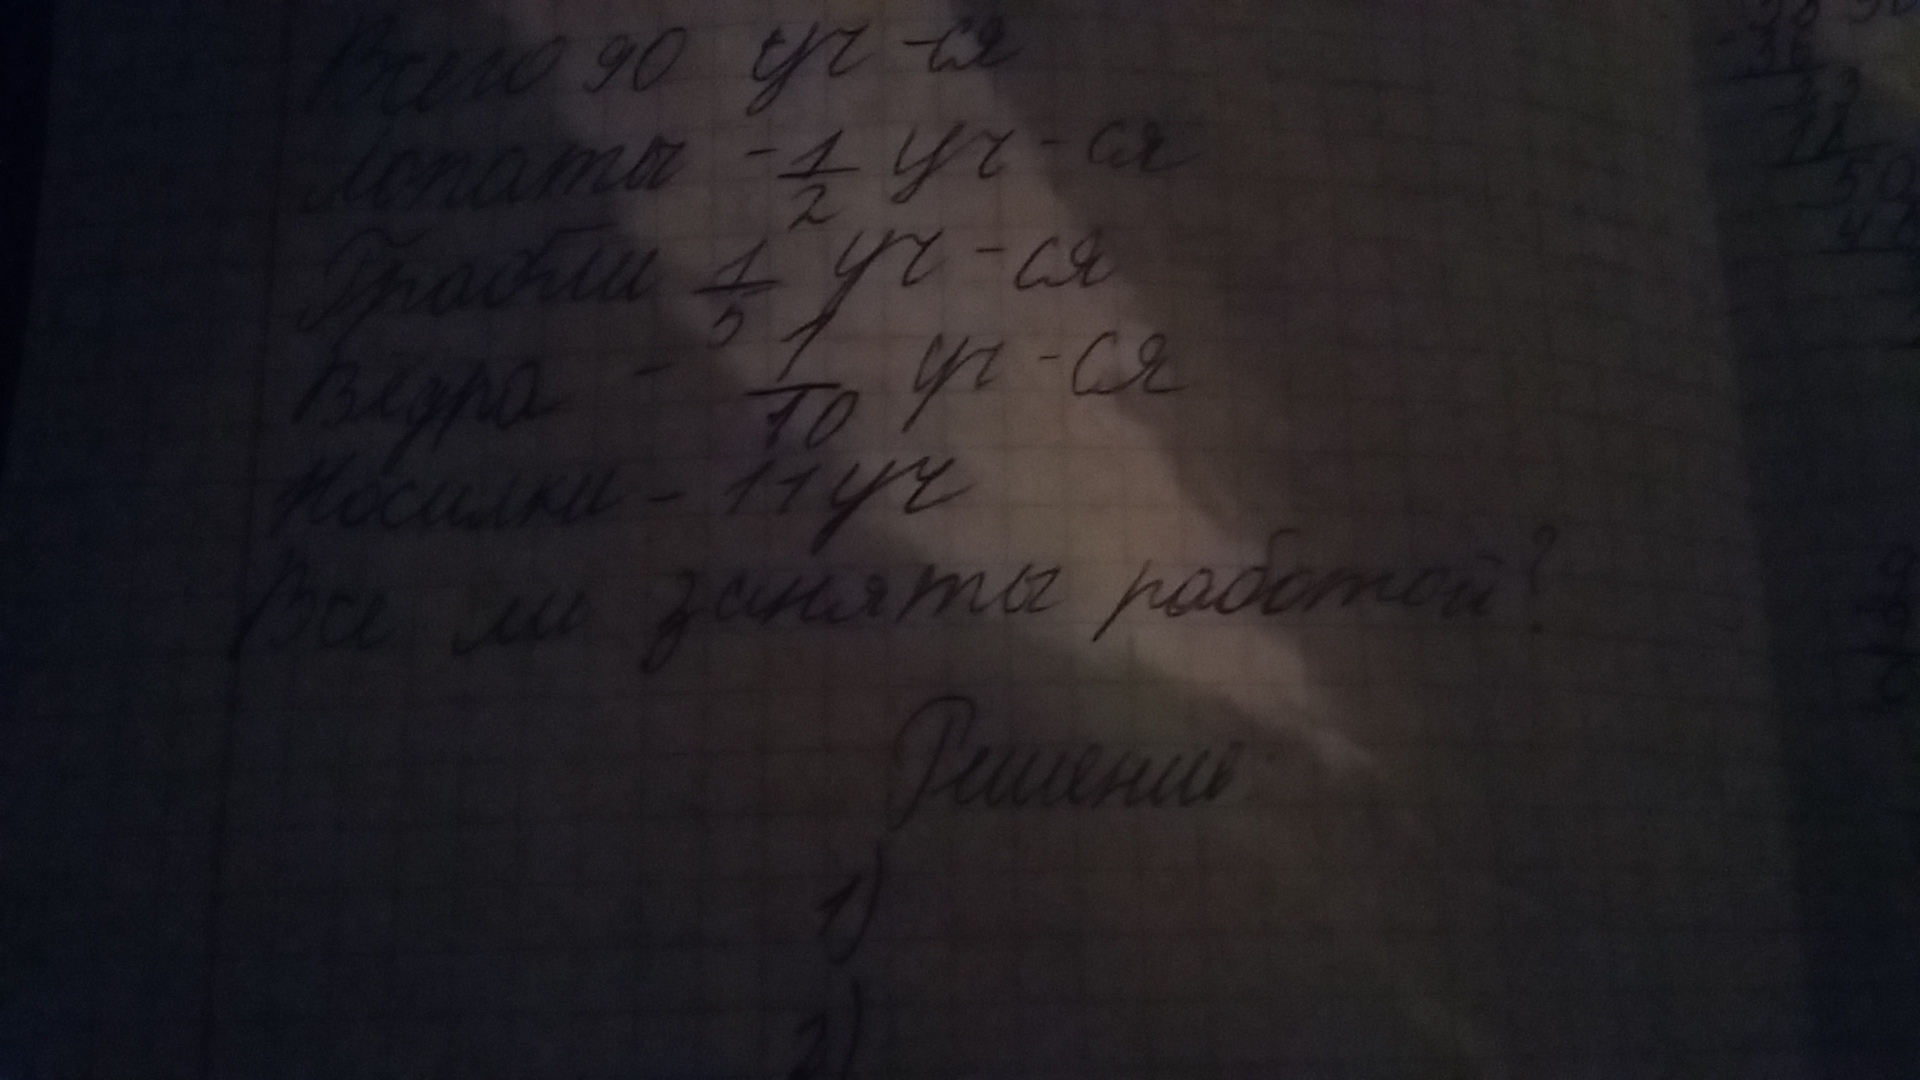 Всего 90 уч-ся
Лопаты - 1/2 уч-ся
Грабли 1/5 уч-ся
Вёдра - 1/10 уч-ся
Носилки - 11 уч
Все ли заняты работой?
Решение
1)
2)